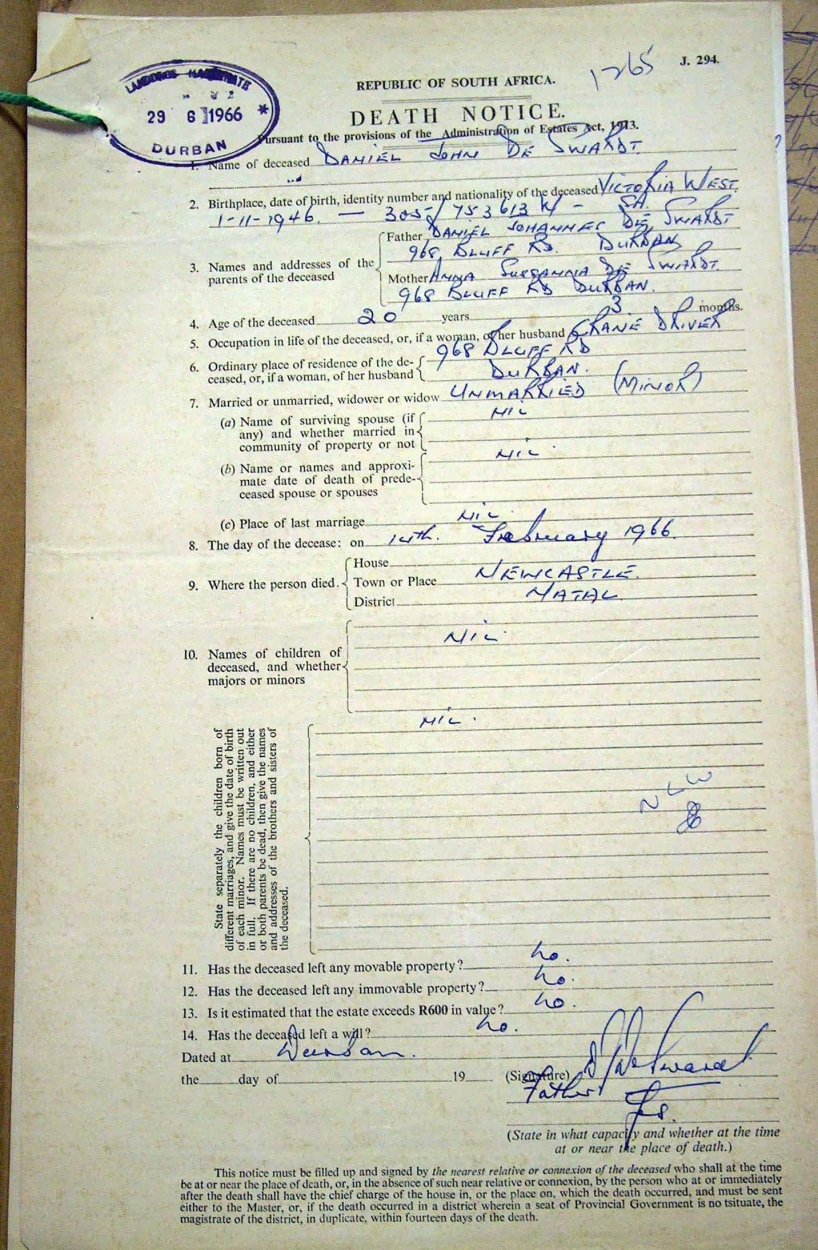 1265
J. 294.
REPUBLIC OF SOUTH AFRICA.
29 6 1966
DURBAN
DEATH NOTICE.
Pursuant to the provisions of the Administration of Estates Act, 1913.
1. Name of deceased DANIEL JOHN DE SWARDT
2. Birthplace, date of birth, identity number and nationality of the deceased VICTORIA WEST.
1-11-1946. — 305/753613 W - SA.
3. Names and addresses of the parents of the deceased
Father DANIEL JOHANNES DE SWARDT
968 BLUFF RD. DURBAN
Mother ANNA SUSSANNA DE SWARDT.
968 BLUFF RD DURBAN.
4. Age of the deceased 20 years 3 months.
5. Occupation in life of the deceased, or, if a woman, of her husband CRANE DRIVER
968 BLUFF RD
6. Ordinary place of residence of the de-
ceased, or, if a woman, of her husband DURBAN.
7. Married or unmarried, widower or widow UNMARRIED (MINOR)
(a) Name of surviving spouse (if NIL
any) and whether married in
community of property or not
(b) Name or names and approxi- NIL.
mate date of death of prede-
ceased spouse or spouses
(c) Place of last marriage NIL.
8. The day of the decease: on 14th. February 1966.
9. Where the person died.
House
Town or Place NEWCASTLE.
District NATAL
10. Names of children of NIL.
deceased, and whether
majors or minors
State separately the children born of
different marriages, and give the date of birth
of each minor. Names must be written out
in full. If there are no children, and either
or both parents be dead, then give the names
and addresses of the brothers and sisters of
the deceased.
NIL.
11. Has the deceased left any movable property? no.
12. Has the deceased left any immovable property? no.
13. Is it estimated that the estate exceeds R600 in value? no.
14. Has the deceased left a will? no.
Dated at Durban.
the day of 19 (Signature)
Father
Yes.
(State in what capacity and whether at the time
at or near the place of death.)
This notice must be filled up and signed by the nearest relative or connexion of the deceased who shall at the time
be at or near the place of death, or, in the absence of such near relative or connexion, by the person who at or immediately
after the death shall have the chief charge of the house in, or the place on, which the death occurred, and must be sent
either to the Master, or, if the death occurred in a district wherein a seat of Provincial Government is no tsituate, the
magistrate of the district, in duplicate, within fourteen days of the death.